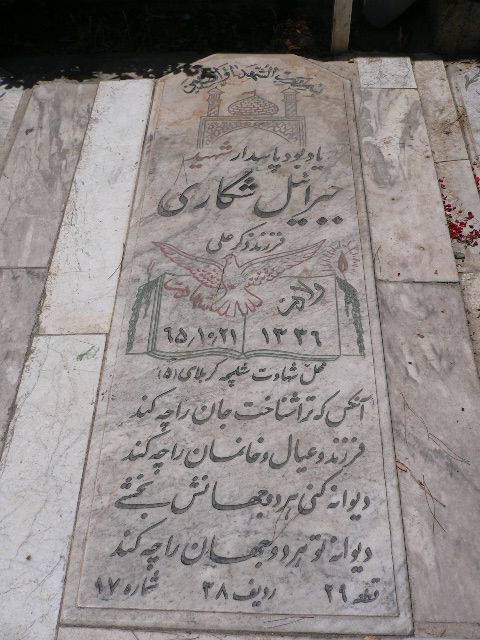 یادبود پاسدار شهید
جبرائیل شکاری
فرزند ذکرعلی
ولادت
۱۳۳۶ ۶۵/۱۰/۲۱
محل شهادت شلمچه کربلای (۵)
آنکس که ترا شناخت جان را چه کند
فرزند و عیال و خانمان را چه کند
دیوانه کنی هر دو جهانش بخشی
دیوانه تو هر دو جهان را چه کند
قطعه ۲۹ ردیف ۲۸ شماره ۱۷